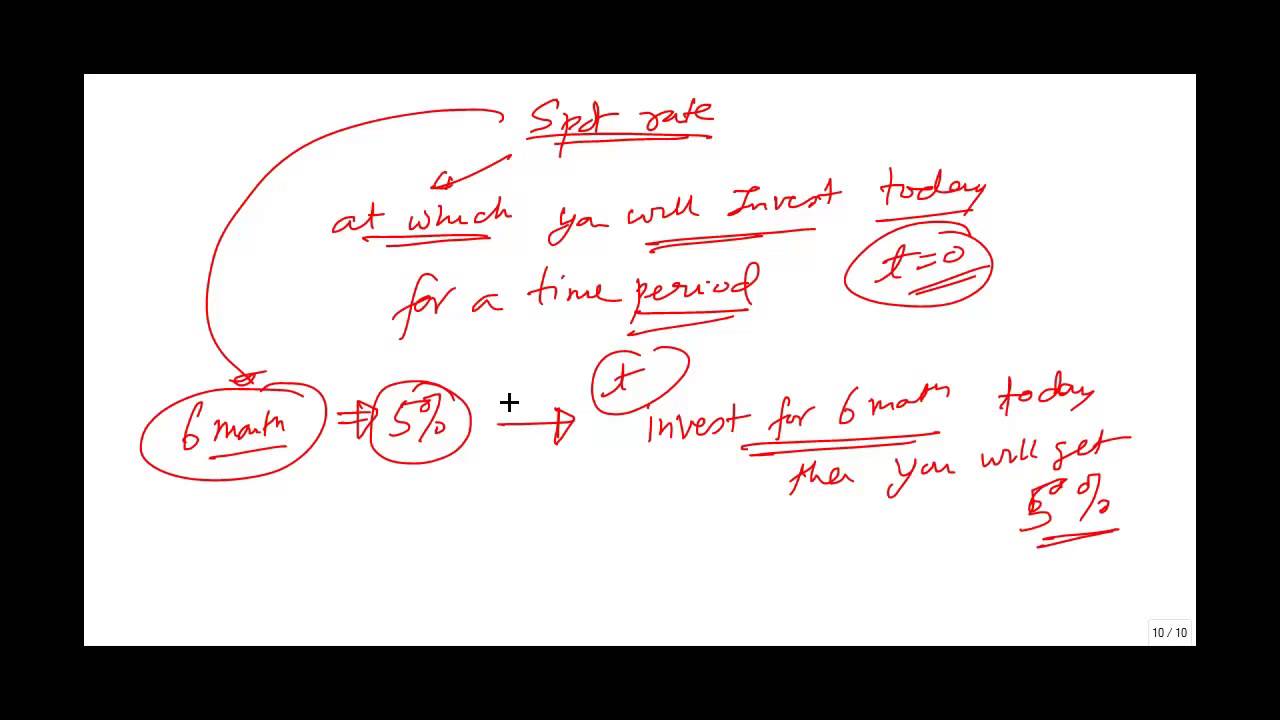 Spot rate
at which you will Invest today
t=0
for a time period
t
6 month ⇒ 5% → invest for 6 month today
then you will get
5%
10 / 10